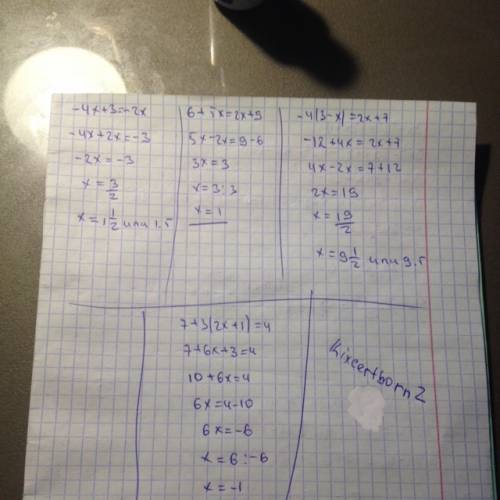 -4x+3=-2x
-4x+2x=-3
-2x=-3
x=3/2
x=1 1/2 или 1.5
6+5x=2x+9
5x-2x=9-6
3x=3
x=3:3
x=1
-4(3-x)=2x+7
-12+4x=2x+7
4x-2x=7+12
2x=19
x=19/2
x=9 1/2 или 9.5
7+3(2x+1)=4
7+6x+3=4
10+6x=4
6x=4-10
6x=-6
x=6:-6
x=-1
kixcertborn2